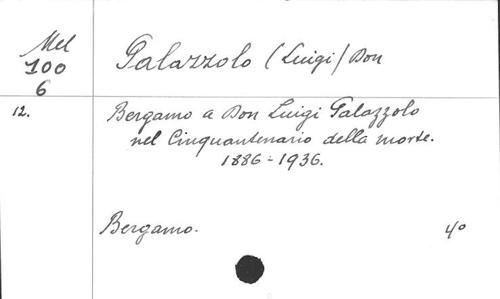 Mel
100
6
Palazzolo (Luigi) Don
12.
Bergamo a Don Luigi Palazzolo
nel Cinquantenario della morte.
1886-1936.
Bergamo.
4°